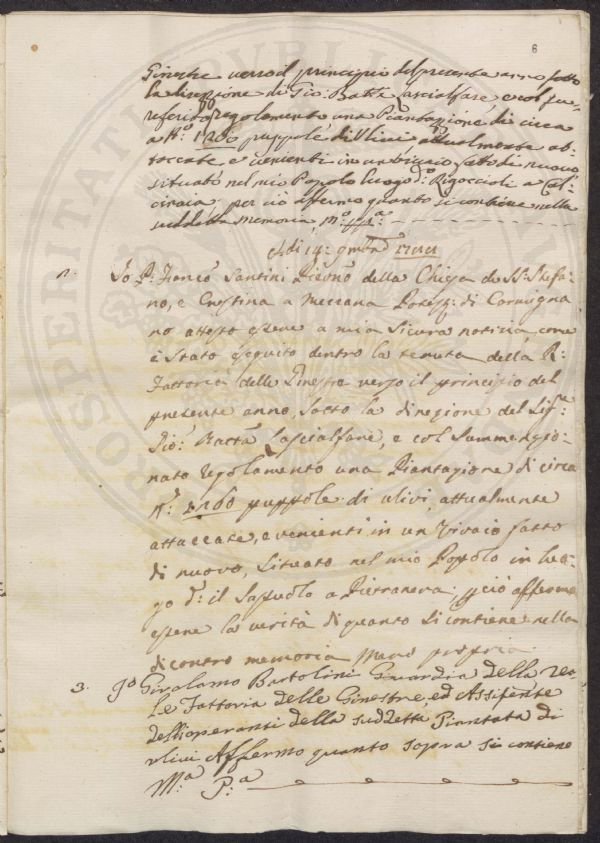 6
Ginestre verso il principio del presente anno sotto
la direzione di Gio: Batta Lascialfare e col
referido regolamento una Piantazione di circa
a N.o 1260 puppole di Ulivi attualmente at-
taccate e venienti in un vivaio fatto di nuovo
situato nel mio Popolo luogo d.o Rigoccioli a
per ciò affermo quanto si contiene nella
suddetta memoria, m.o pp.a
Adi 14: 9mbre
2. Io P: Franc.o Santini Piev.no della Chiesa de SS: Stefa-
no, e Cristina a Mezzana Potes.a: di Carmigna
no attesto essere a mia sicura notizia, come
è stato eseguito dentro la tenuta della R:
Fattoria delle Ginestre verso il principio del
presente anno, sotto la direzione del Sig.re
Gio: Batta Lascialfare, e col summenzio-
nato regolamento una Piantazione di circa
N.o: 1260 puppole di ulivi, attualmente
attaccate, e venienti, in un Vivaio fatto
di nuovo, situato nel mio Popolo in luo-
go d.o: il a Pietranera; p ciò affermo
essere la verità di quanto si contiene nella
di contro memoria Mano propria
3. Io Girolamo Bartolini Guardia della rea
le Fattoria delle Ginestre, ed Assistente
dell'operanti della sudetta Piantata di
ulivi Affermo quanto sopra si contiene
M.a P.a